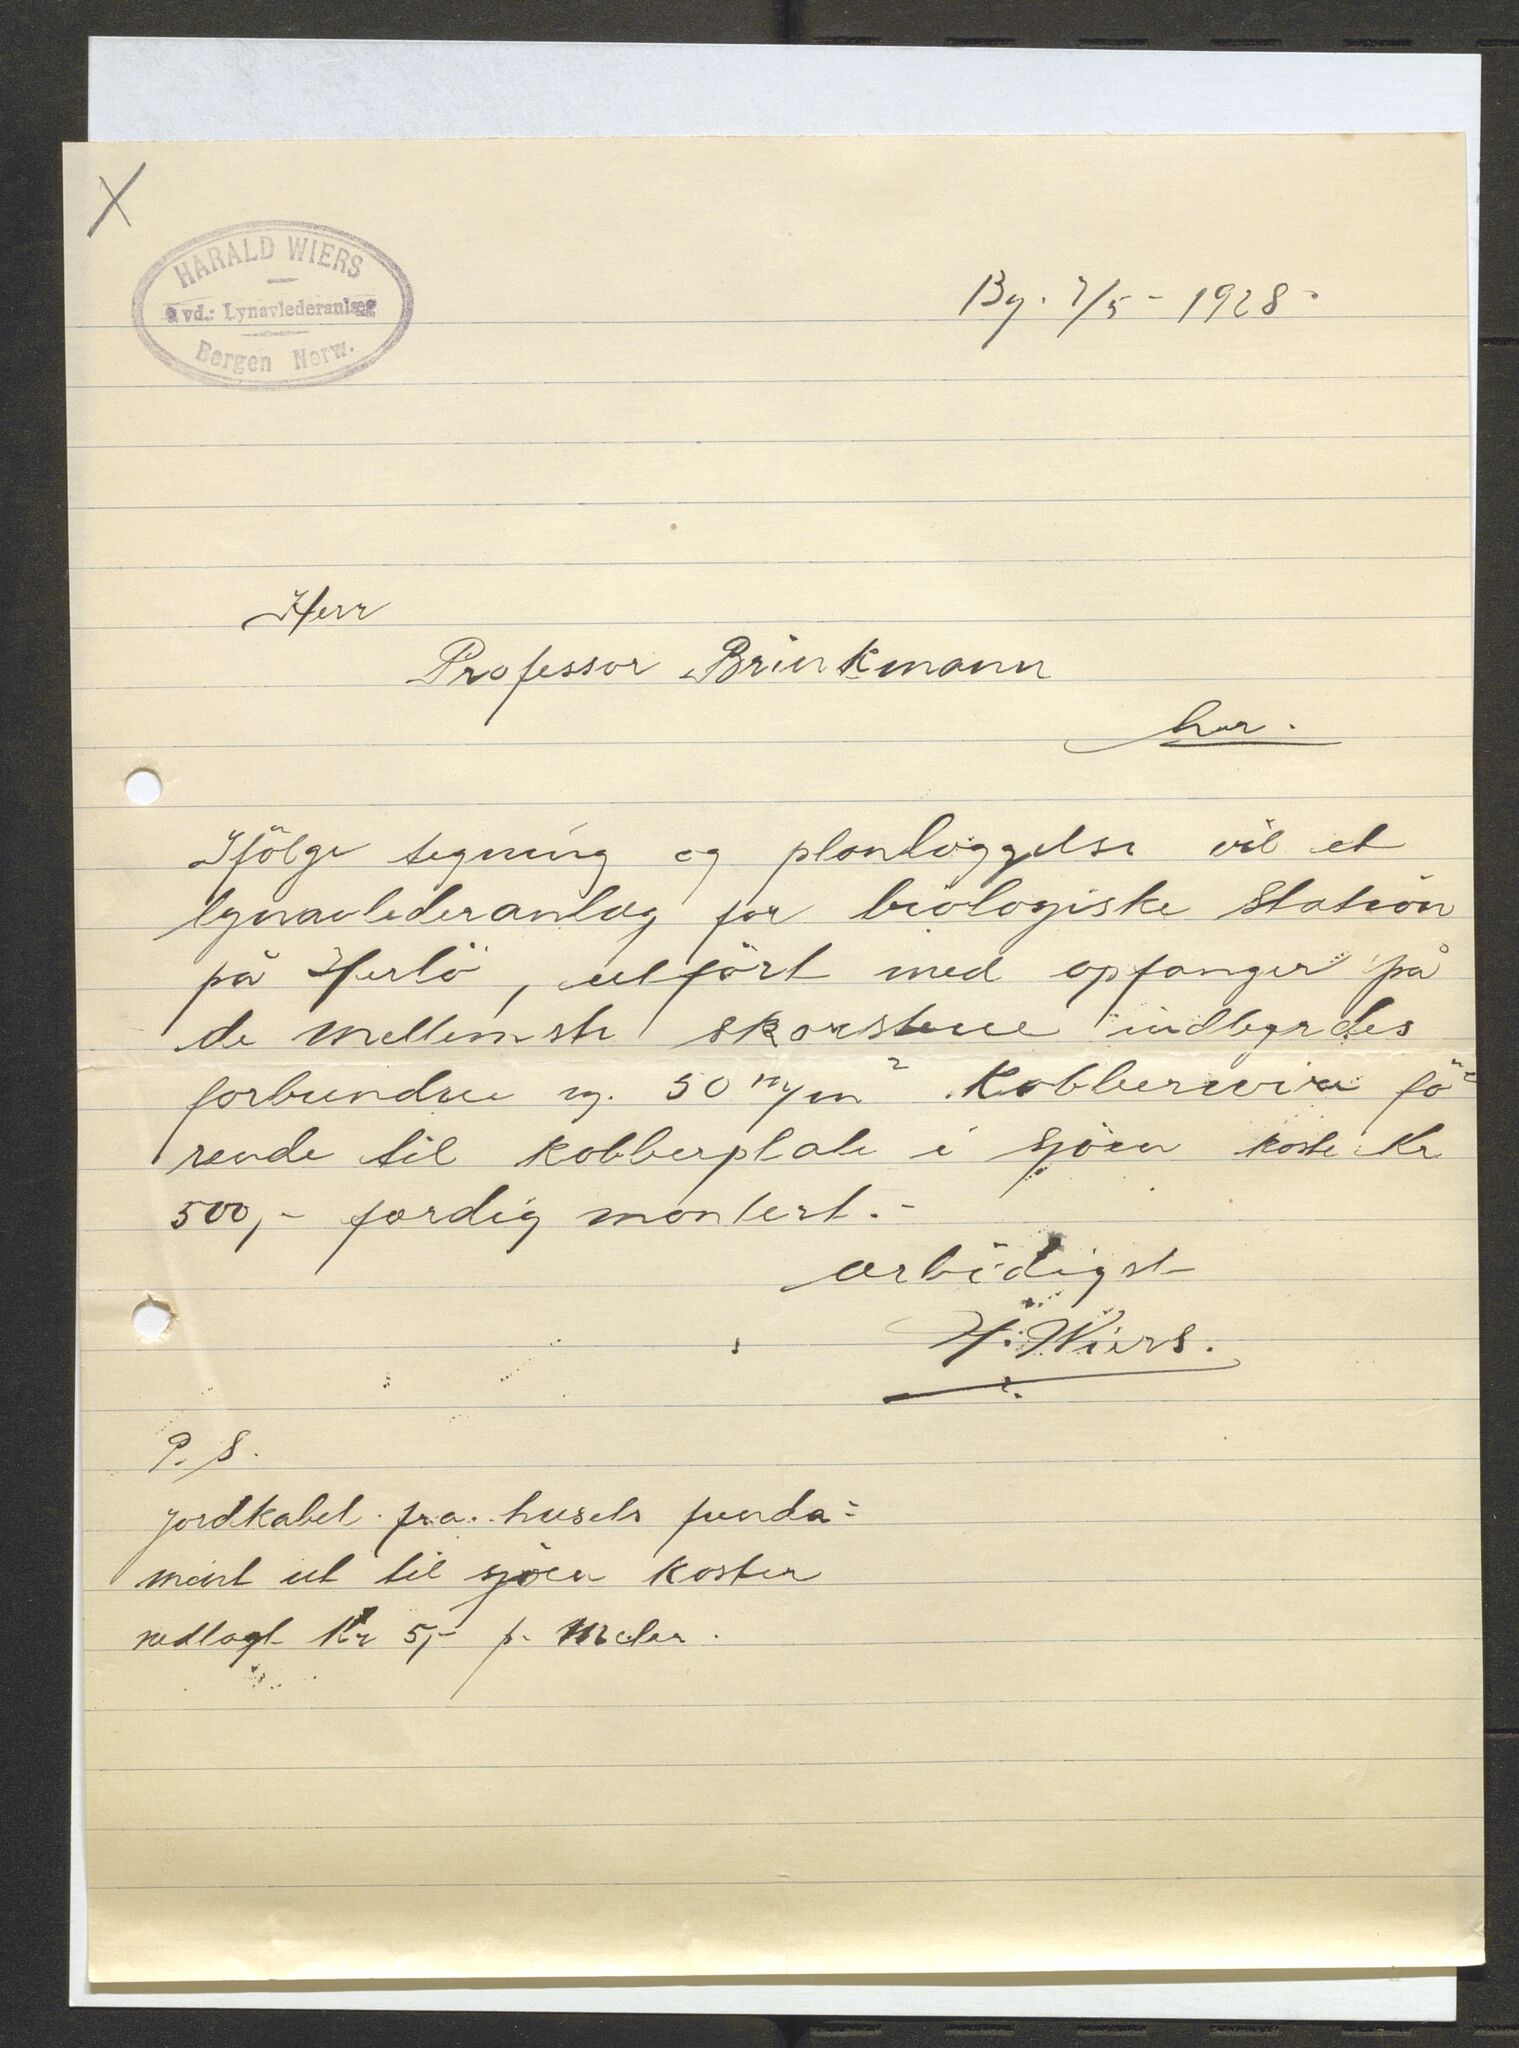 X
HARALD WIERS
avd.: Lynavlederanlæg
Bergen Norw.
Bg. 7/5 - 1928 -
Herr
Professor Brinkmann
her.
Ifölge tegning og planlæggelse vil et
lynavlederanlæg for biologiske station
på Herlö, utfört med opfanger på
de mellemste skorstene indbyrdes
forbundne og. 50 m/m² Kobberwire fö=
rende til kobberplate i sjöen koste Kr
500,- færdig montert.-
ærbödigst
H. Wiers.
P. S.
jordkabel fra husets funda=
ment ut til sjöen koster
nedlagt Kr 5,- p. Meter.